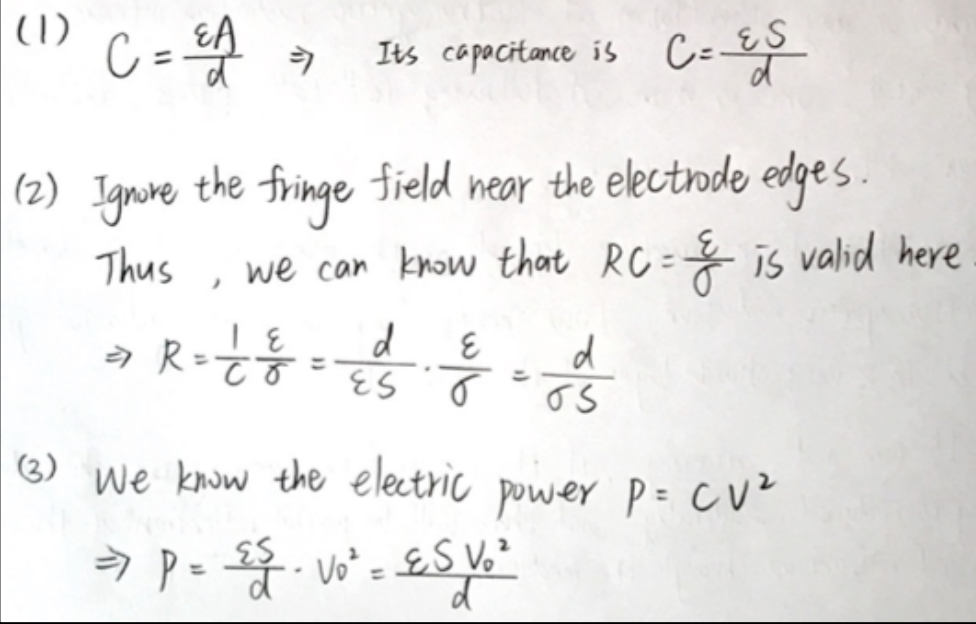 (1) C = εA/d ⇒ Its capacitance is C = εS/d
(2) Ignore the fringe field near the electrode edges.
Thus , we can know that RC = ε/σ is valid here.
⇒ R = 1/C ε/σ = d/εS · ε/σ = d/σS
(3) We know the electric power P = CV²
⇒ P = εS/d · V₀² = εSV₀²/d